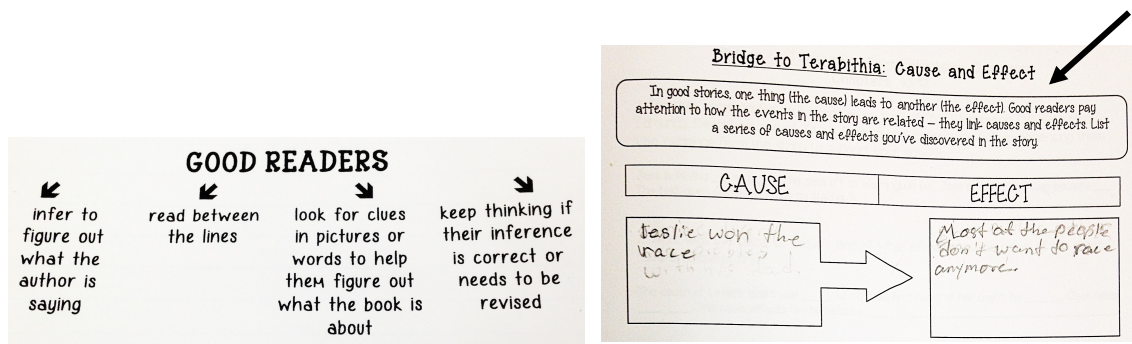 GOOD READERS
infer to
figure out
what the
author is
saying
read between
the lines
look for clues
in pictures or
words to help
them figure out
what the book is
about
keep thinking if
their inference
is correct or
needs to be
revised
Bridge to Terabithia: Cause and Effect
In good stories, one thing (the cause) leads to another (the effect). Good readers pay
attention to how the events in the story are related – they link causes and effects. List
a series of causes and effects you've discovered in the story.
CAUSE
EFFECT
Leslie won the
race
Most of the people
don't want to race
anymore.